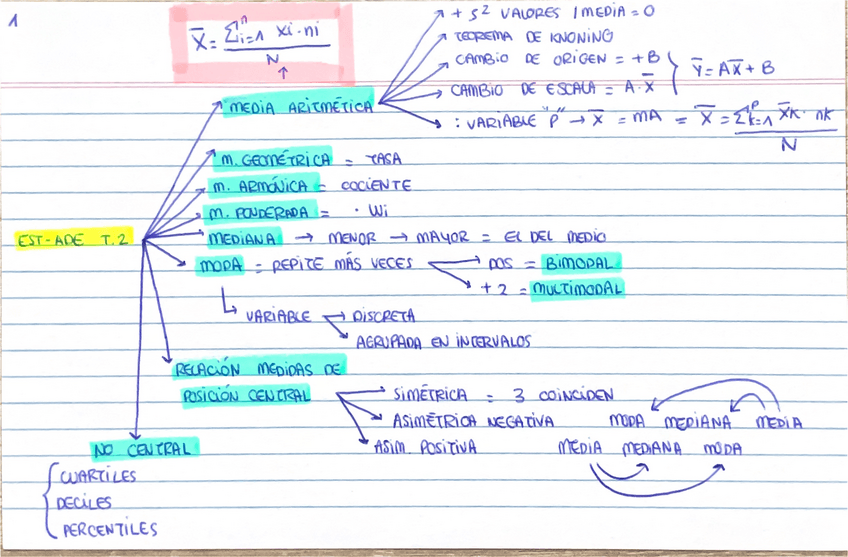 1
X̄ = Σⁿᵢ₌₁ xi · ni / N
+ S² VALORES / MEDIA = 0
TEOREMA DE KNONING
CAMBIO DE ORIGEN = +B
CAMBIO DE ESCALA = A · X̄
Ȳ = AX̄ + B
MEDIA ARITMÉTICA
: VARIABLE "P" → X̄ = MA = X̄ = Σᵖₖ₌₁ X̄k · nk / N
M. GEOMÉTRICA = TASA
M. ARMÓNICA = COCIENTE
M. PONDERADA = · Wi
EST-ADE T.2
MEDIANA → MENOR → MAYOR = EL DEL MEDIO
MODA = REPITE MÁS VECES → DOS = BIMODAL
+ 2 = MULTIMODAL
VARIABLE → DISCRETA
AGRUPADA EN INTERVALOS
RELACIÓN MEDIDAS DE
POSICIÓN CENTRAL
SIMÉTRICA = 3 COINCIDEN
ASIMÉTRICA NEGATIVA MODA MEDIANA MEDIA
ASIM. POSITIVA MEDIA MEDIANA MODA
NO CENTRAL
CUARTILES
DECILES
PERCENTILES